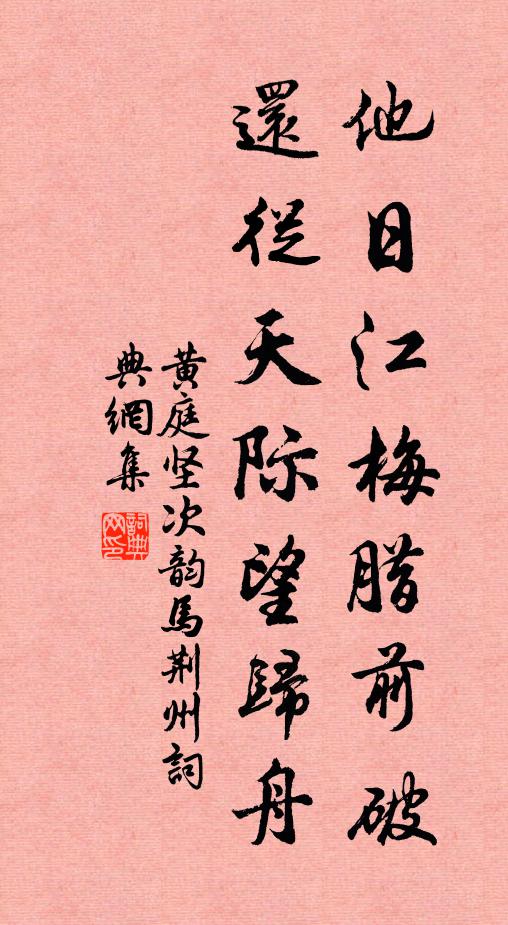 他日江梅腊前破
還從天际望歸舟
黄庭坚次韵馬荆州詞
典網集
詞典
网印